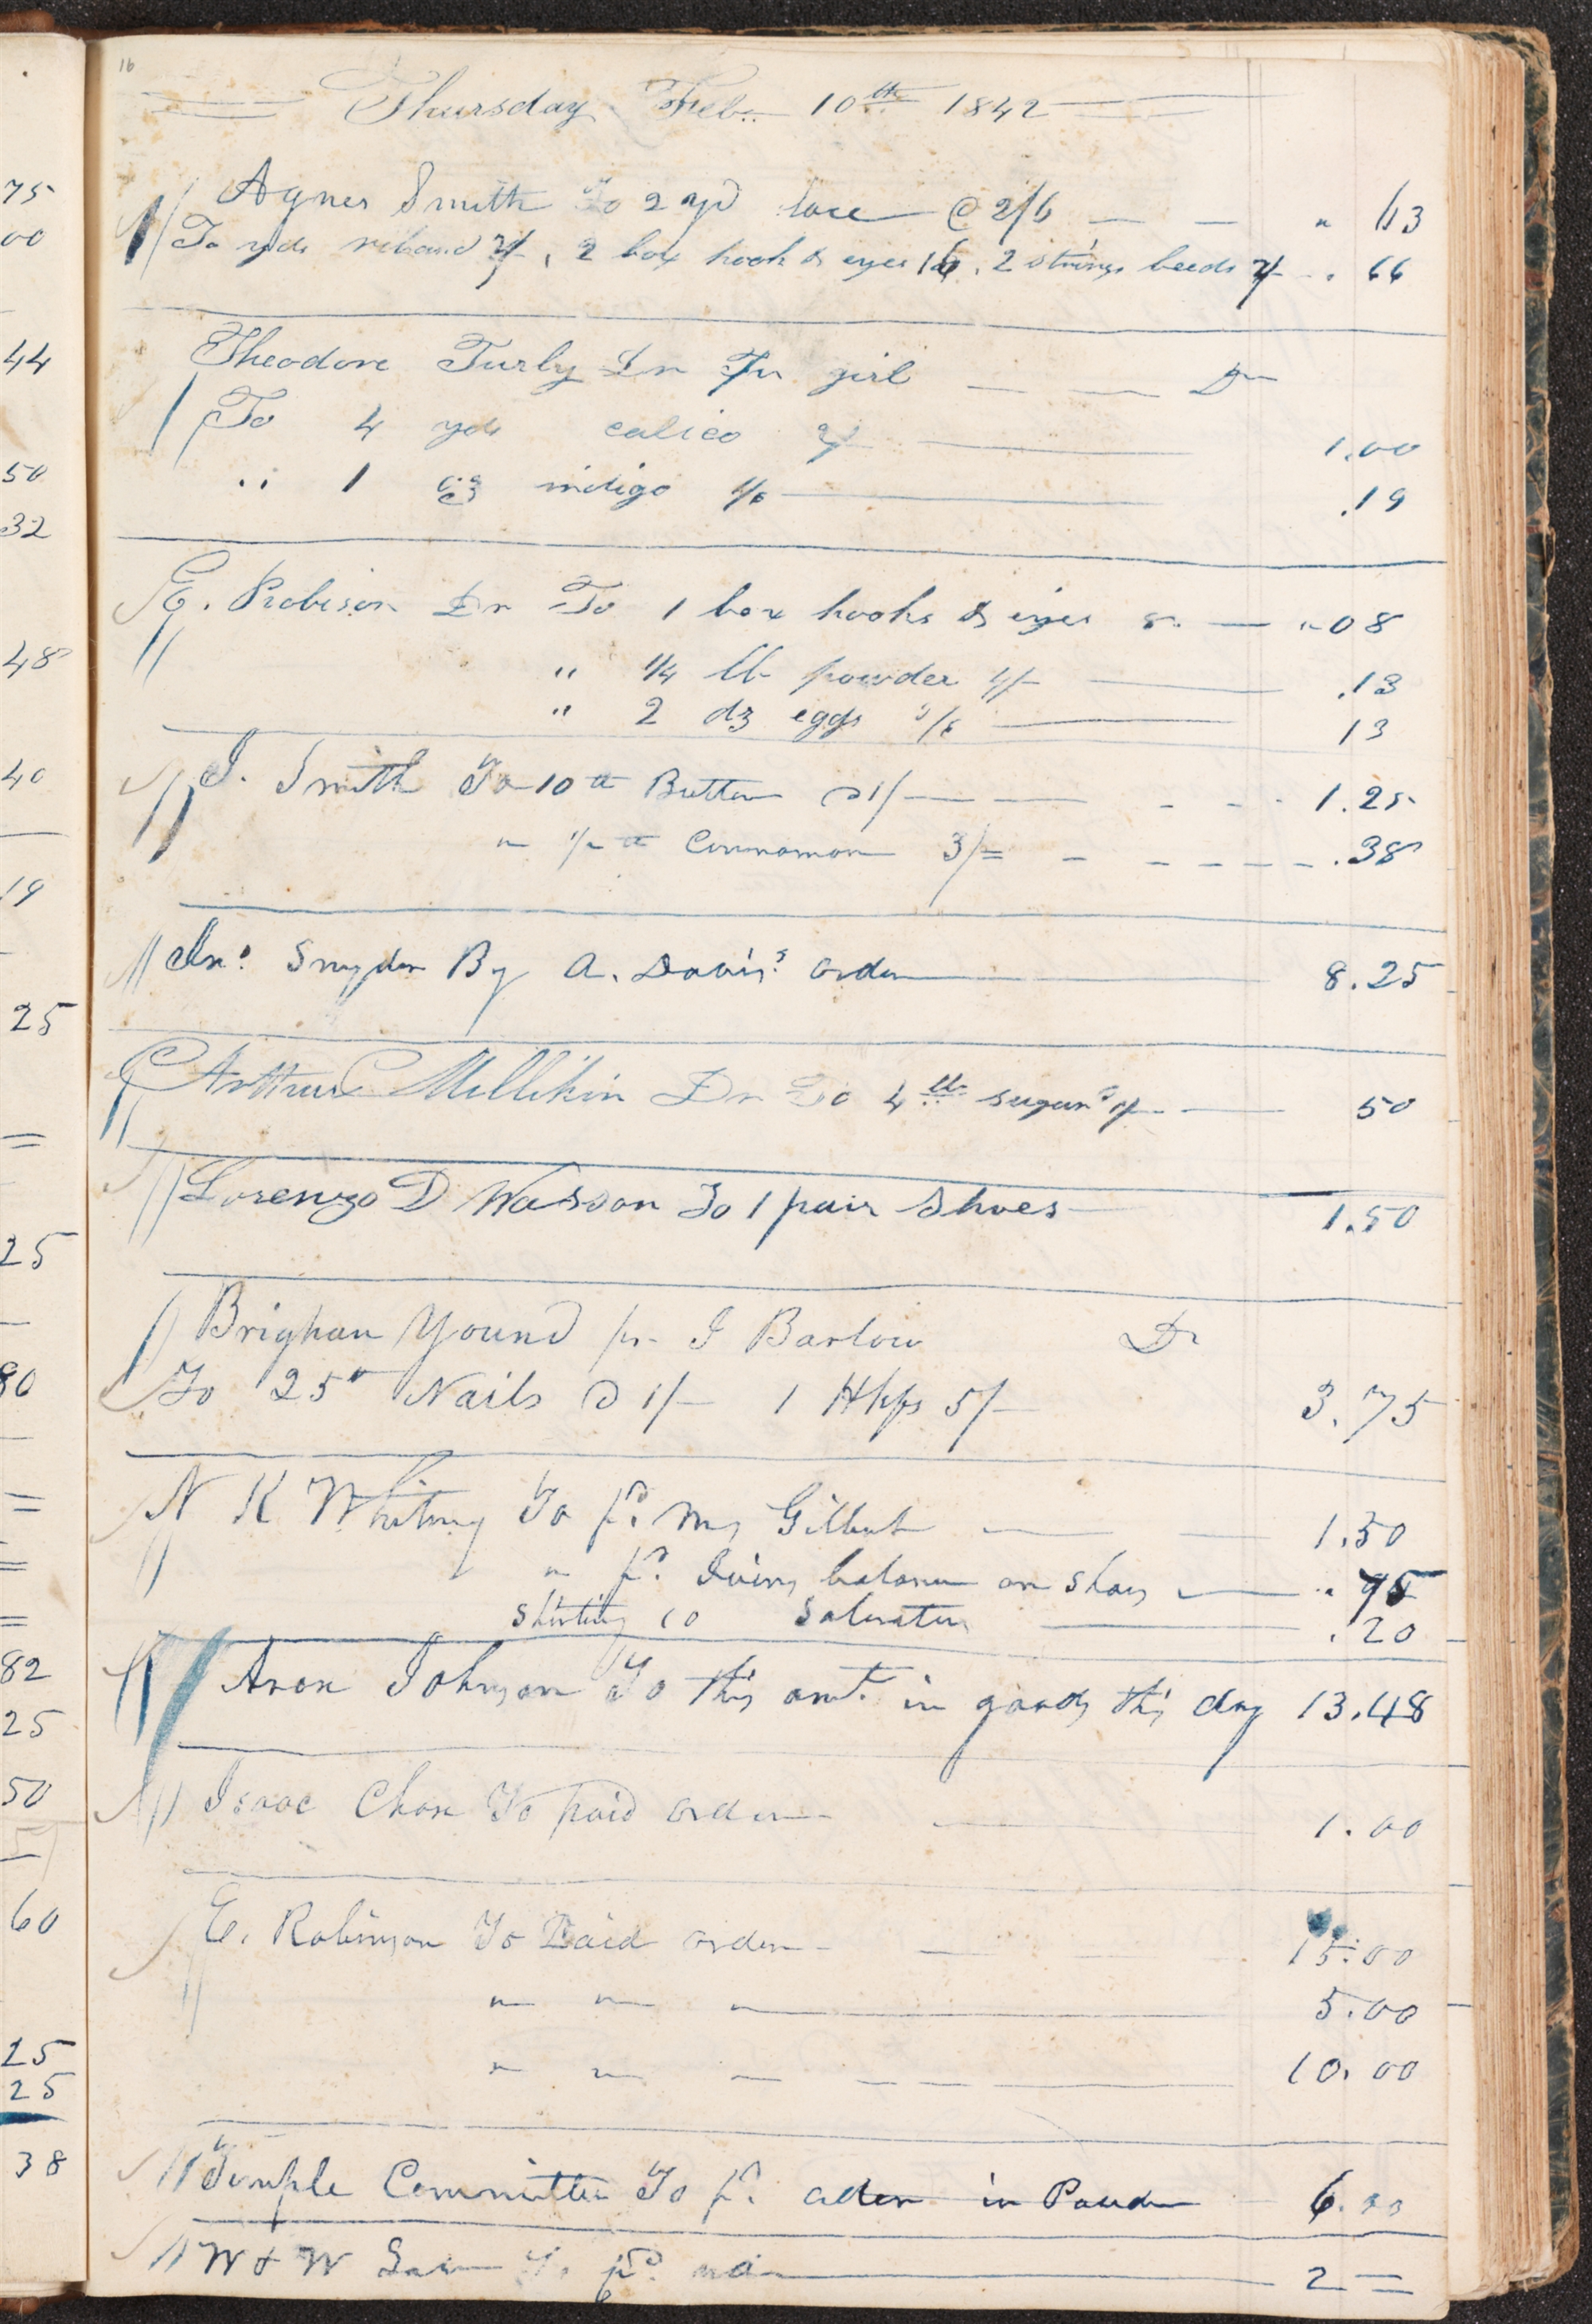 75
00
44
50
32
48
40
19
25
25
80
82
25
50
60
25
25
38
16
Thursday Feb. 10th 1842
Agnes Smith To 2 yd lace @ 2/6 " 63
To yds riband, 2 box hook & eyes, 2 strings beeds . 66
Theodore Turly Dr Pr girl Dr
To 4 yds calico 2/ 1.00
" 1 oz indigo 1/6 .19
E. Robison Dr To 1 box hooks & eyes 8. "08
" 1/4 lb powder 4/- .13
" 2 dz eggs /6 13
J. Smith To 10 lb Butter @ 1/- 1.25
" 1/2 lb Cinnamon 3/= .38
Jno. Snyder By A. Davis's order 8.25
Arthur Millikin Dr To 4 lb sugar 1/- 50
Lorenzo D Wasson To 1 pair Shoes 1.50
Brighan Yound pr J Barlow Dr
To 25 lb Nails @ 1/- 1 5/- 3.75
N K Whitney To pd. Gilbert 1.50
" pd. balance on shoes " 75
Shirting 10 Saleratus .20
Aron Johnson To this amt. in goods this day 13.48
Isaac Chase To paid order 1.00
E. Robinson To Paid order 15.00
" " " 5.00
" " " 10.00
Temple Committee To pd. order in Powder 6.
W & W Law To pd. 2 =